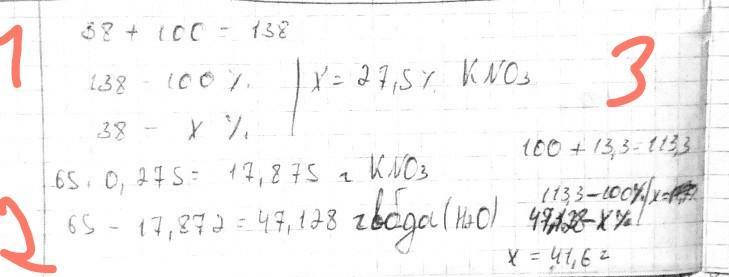 1
38 + 100 = 138
138 - 100 %.
38 - x %.
x = 27,5 % KNO3
65 . 0,275 = 17,875 г KNO3
2
65 - 17,872 = 47,128 г вода (H2O)
3
100 + 13,3 = 113,3
113,3 - 100% x =
47,128 - x %
x = 41,6 г